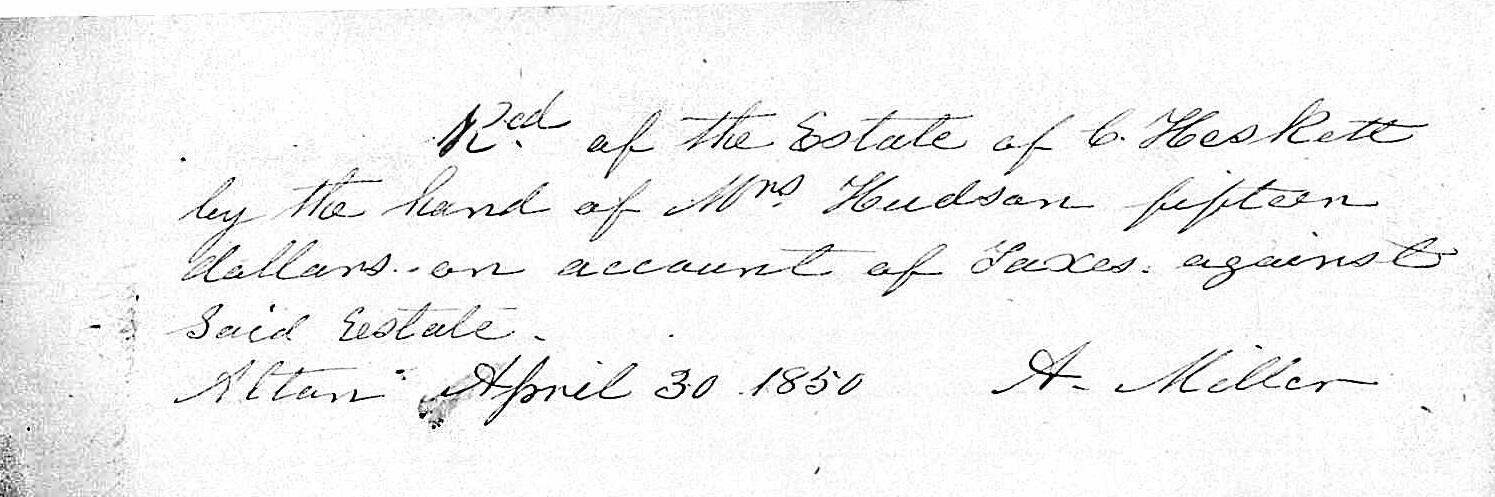 Rcd. of the Estate of C. Heskett
by the hand of Mrs. Hudson fifteen
dollars - on account of Taxes. against
Said Eestate.
Alton April 30 1850 A. Miller